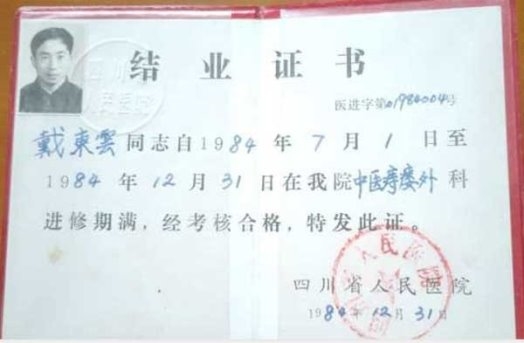 结业证书
医进字第01984004号
戴東雲同志自1984年7月1日至
1984年12月31日在我院中医痔瘘外科
进修期满，经考核合格，特发此证。
四川省人民医院
1984年12月31日